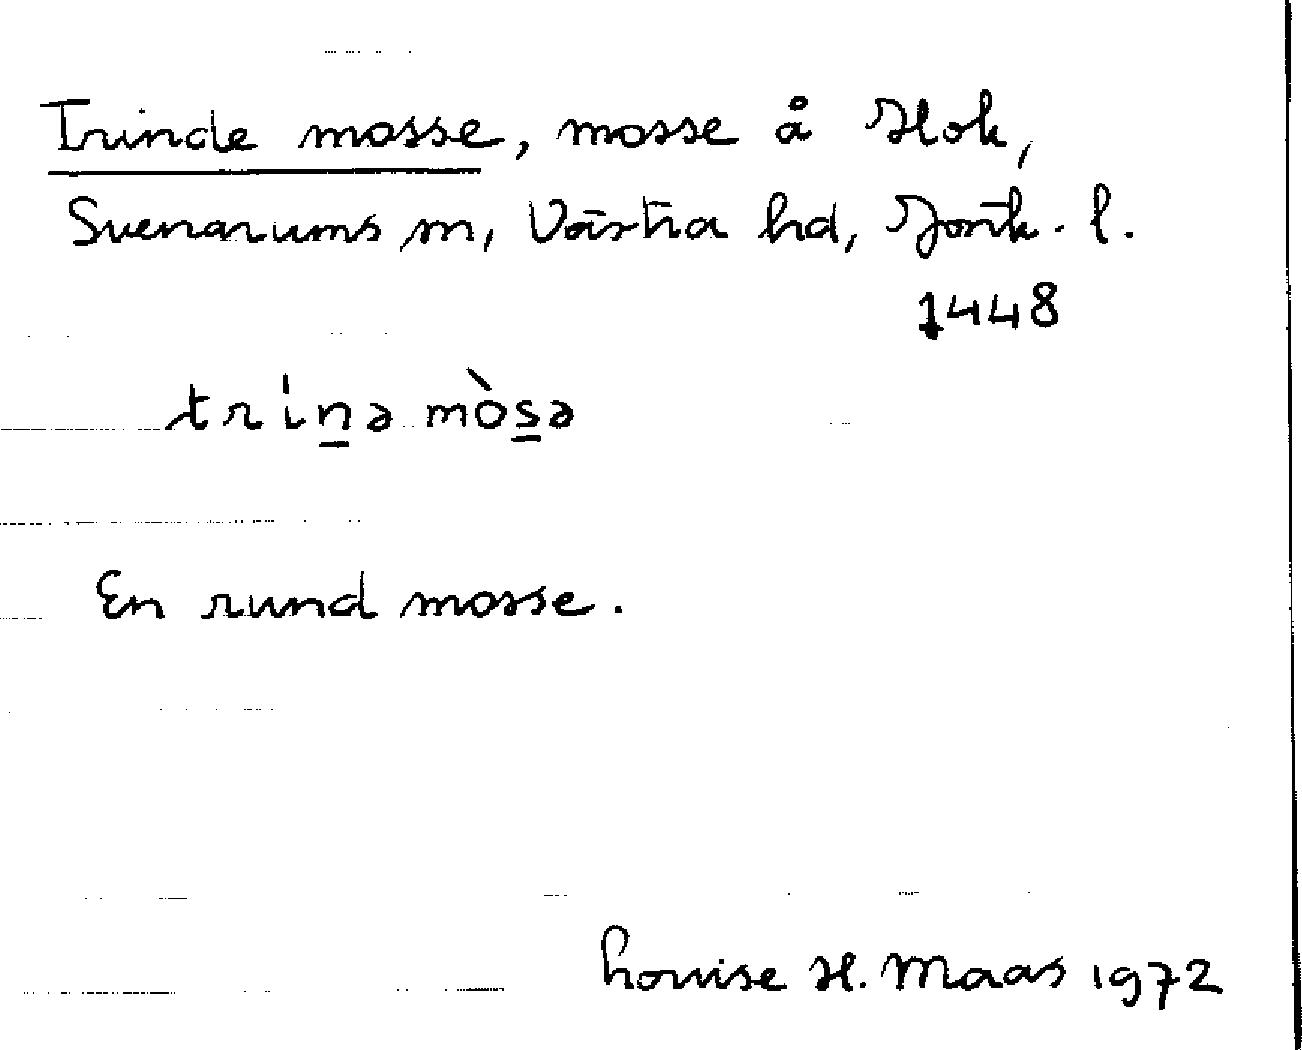 Trinde mosse, mosse å Hok,
Svenarums sn, Västra hd, Jönk. l.
1448
trı̍n̲ə mòs̲ə
En rund mosse.
Louise H. Maas 1972